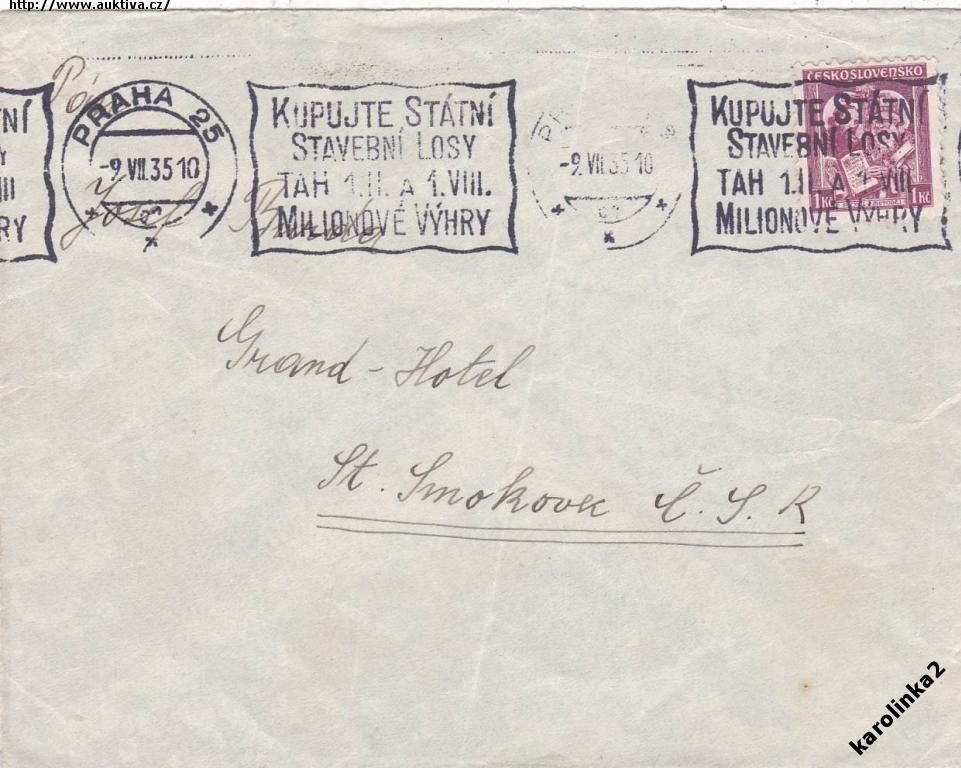 http://www.auktiva.cz/
Pán
Josef
PRAHA 25
-9.VII.35 10
KUPUJTE STÁTNÍ
STAVEBNÍ LOSY
TAH 1.II. A 1.VIII.
MILIONOVÉ VÝHRY
-9.VII.35 10
KUPUJTE STÁTNÍ
STAVEBNÍ LOSY
TAH 1.II. A 1.VIII.
MILIONOVÉ VÝHRY
ČESKOSLOVENSKO
1 Kč 1 Kč
TNÍ
VIII
HRY
Grand-Hotel
St. Smokovec Č.S.R
karolinka2